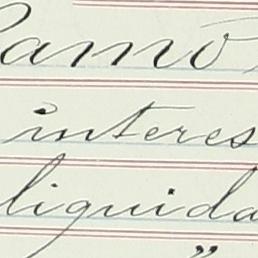 Ramo
interes
liquida
"